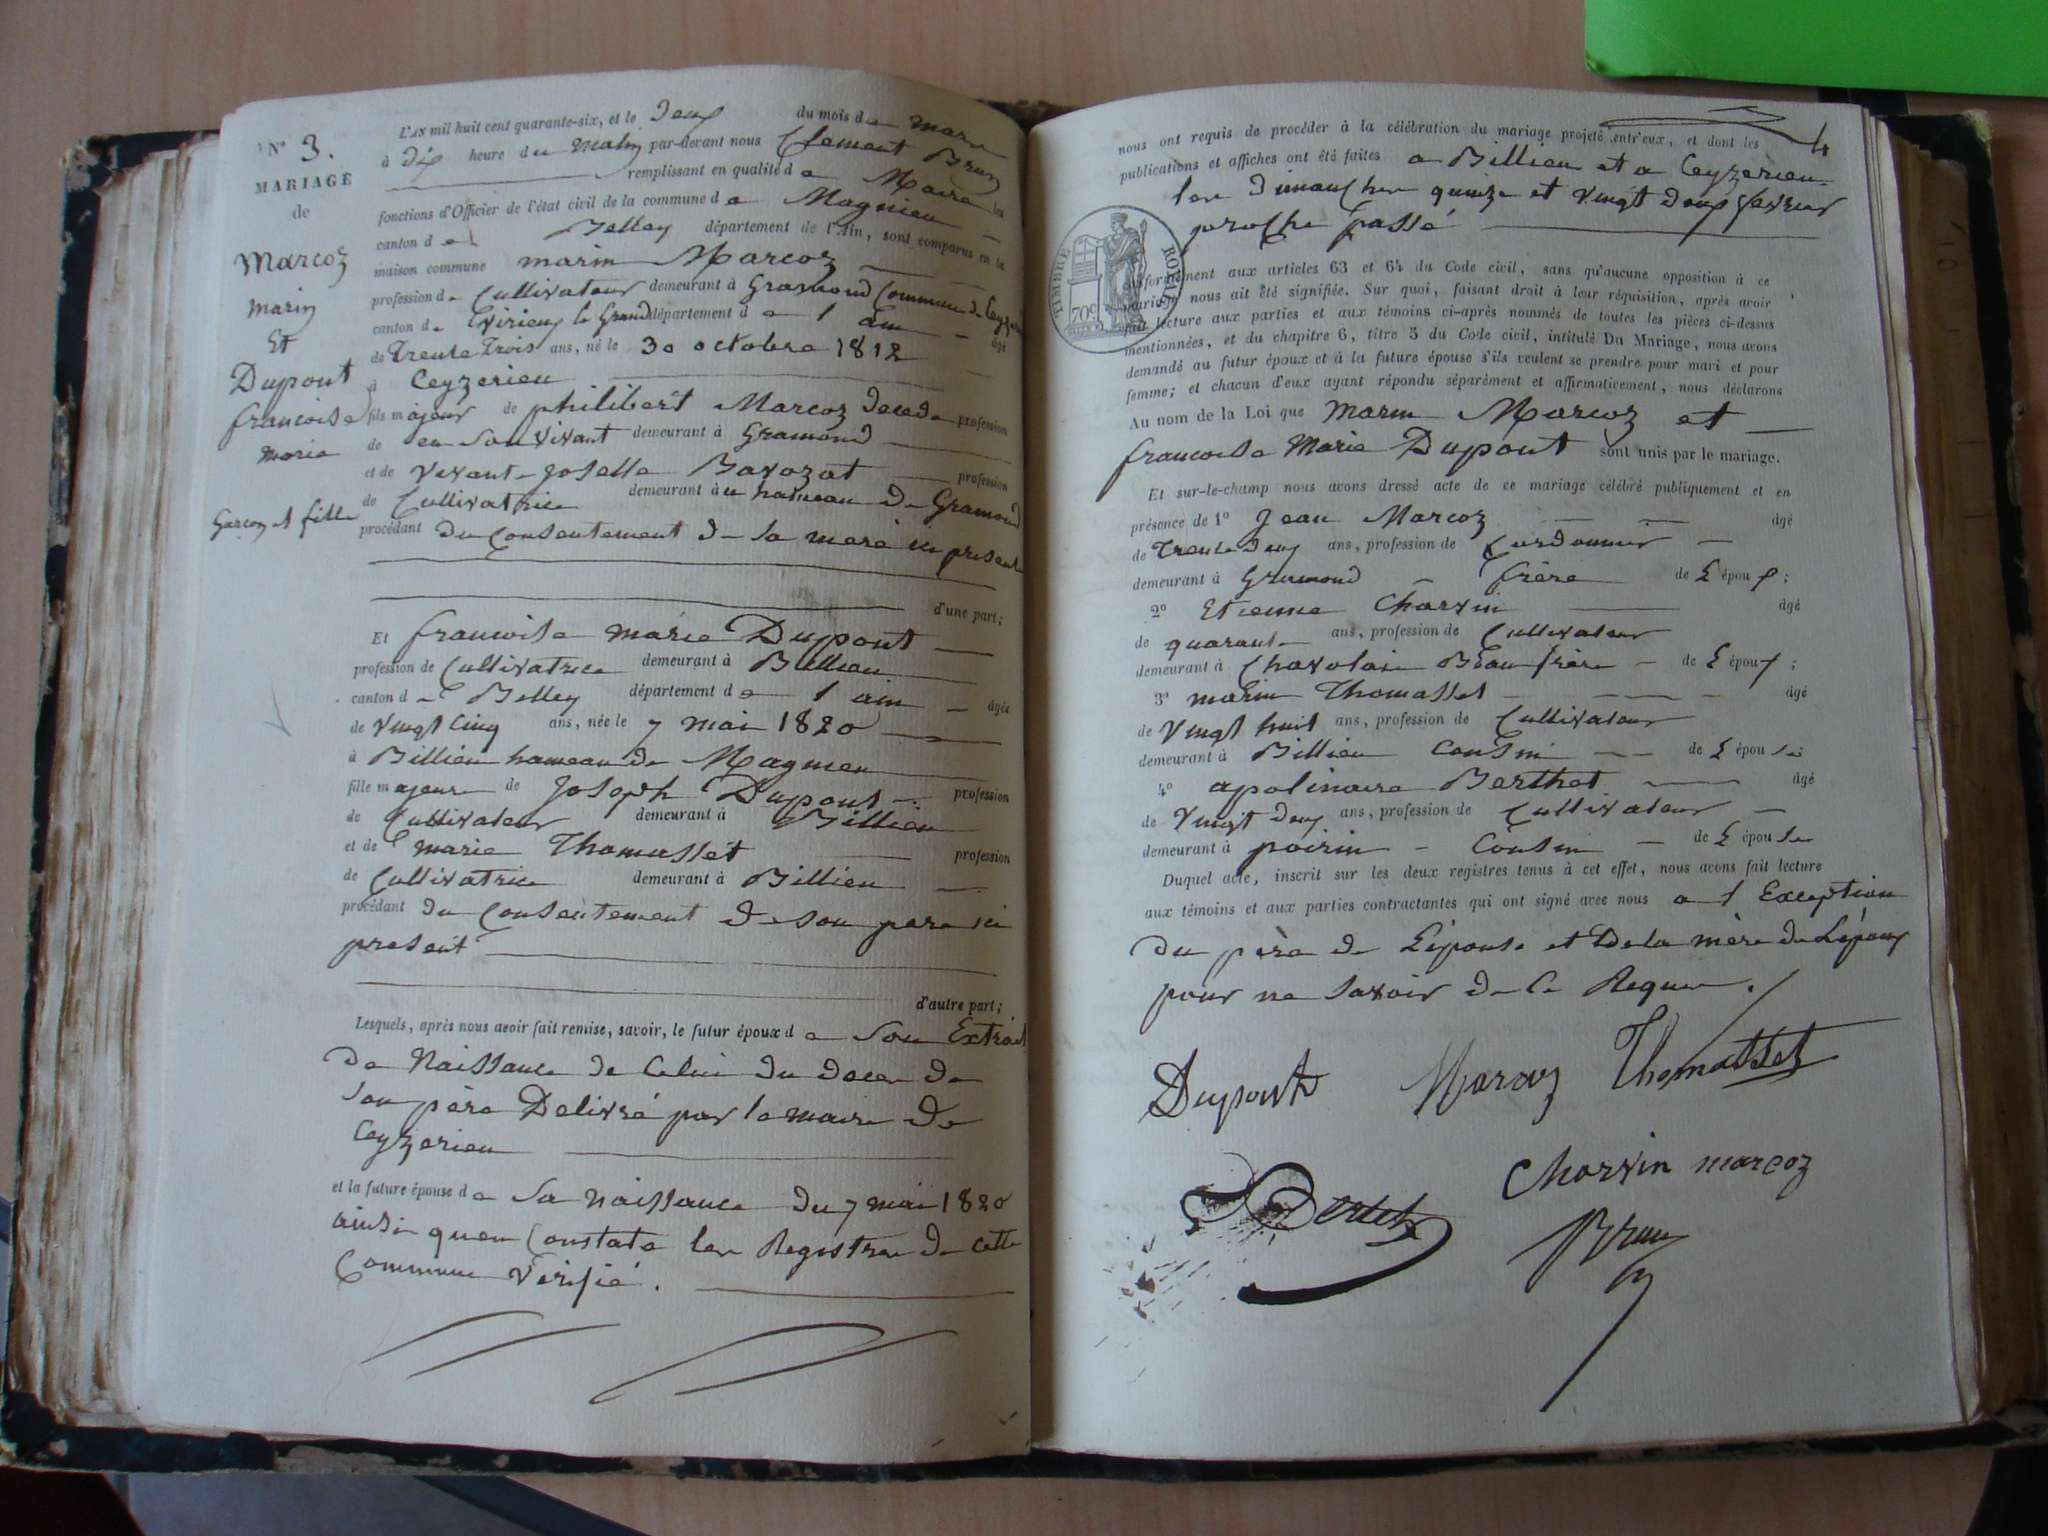 N° 3.
MARIAGE
de
Marcoz
Marin
Et
Dupont
francoise
marie
Garçon et fille
L'AN mil huit cent quarante-six, et le deux du mois de mars
à dix heure du matin par-devant nous Clement Brun
remplissant en qualité de Maire les
fonctions d'Officier de l'état civil de la commune de Magnieu
canton de Belley département de l'Ain, sont comparus en la
maison commune marin Marcoz
profession de Cultivateur demeurant à Gramond Commune de
canton de Virieu le Grand département de l ain âgé
de Trente Trois ans, né le 30 octobre 1812
à Ceyzerieu
fils majeur de philibert Marcoz decede profession
de en Son Vivant demeurant à Gramond
et de Vivant Joselle Bavozat profession
de Cultivatrice demeurant à hameau de Gramond
procédant du Consentement de Sa mere ici presente
d'une part;
Et francoise marie Dupont
profession de Cultivatrice demeurant à Billieu
canton de Belley département de l ain âgée
de Vingt Cinq ans, née le 7 mai 1820
à Billieu hameau de Magnieu
fille majeure de Joseph Dupont profession
de Cultivateur demeurant à Billieu
et de marie Thomasset profession
de Cultivatrice demeurant à Billieu
procédant du Consentement de son pere ici
present
d'autre part;
Lesquels, après nous avoir fait remise, savoir, le futur époux de Son Extrait
de Naissance de Celui du deces de
Son père Delivré par le maire de
Ceyzerieu
et la future épouse de Sa naissance du 7 mai 1820
ainsi quen Constate les Registres de cette
Commune Vérifié.
4
nous ont requis de procéder à la célébration du mariage projeté entr'eux, et dont les
publications et affiches ont été faites a Billieu et a Ceyzerieu
les dimanches quinze et vingt deux fevrier
proche passé
TIMBRE ROYAL
70c.
conformément aux articles 63 et 64 du Code civil, sans qu'aucune opposition à ce
mariage nous ait été signifiée. Sur quoi, faisant droit à leur réquisition, après avoir
fait lecture aux parties et aux témoins ci-après nommés de toutes les pièces ci-dessus
mentionnées, et du chapitre 6, titre 5 du Code civil, intitulé Du Mariage, nous avons
demandé au futur époux et à la future épouse s'ils veulent se prendre pour mari et pour
femme; et chacun d'eux ayant répondu séparément et affirmativement, nous déclarons
Au nom de la Loi que Marin Marcoz et
francoise Marie Dupont sont unis par le mariage.
Et sur-le-champ nous avons dressé acte de ce mariage célébré publiquement et en
présence de 1° Jean Marcoz âgé
de Trente deux ans, profession de Cordonnier
demeurant à Gramond frère de L époux;
2° Etienne Charvin âgé
de quarante ans, profession de Cultivateur
demeurant à Chavolai Beau frère de L époux;
3° marin Thomasset âgé
de Vingt huit ans, profession de Cultivateur
demeurant à Billieu Cousin de L épouse
4° apolinaire Berthet âgé
de Vingt deux ans, profession de Cultivateur
demeurant à poirin Cousin de L épouse
Duquel acte, inscrit sur les deux registres tenus à cet effet, nous avons fait lecture
aux témoins et aux parties contractantes qui ont signé avec nous a l Exception
du père de L'épouse et De la mère de L'époux
pour ne Savoir de Ce Requis.
Dupont Marcoz Thomasset
Charvin marcoz
Bertet
Brun